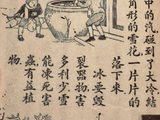 中的汽碰到了大冷結
角形的雪花一片片的
落下來
冰妄毀
裂器物
能凍死害
多利少雪
蟲有益植
物